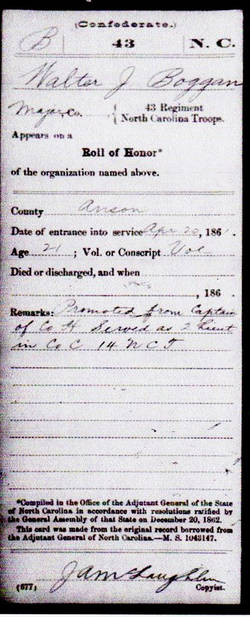 (Confederate.)
B 43 N. C.
Walter J Boggan
Major Co. 43 Regiment
North Carolina Troops.
Appears on a
Roll of Honor*
of the organization named above.
County Anson
Date of entrance into service Apr 20, 186
Age 21; Vol. or Conscript Vol
Died or discharged, and when
, 186 .
Remarks: Promoted from Captain
of Co H Served as 2 Lieut
in Co C 14 N C T
*Compiled in the Office of the Adjutant General of the State
of North Carolina in accordance with resolutions ratified by
the General Assembly of that State on December 20, 1862.
This card was made from the original record borrowed from
the Adjutant General of North Carolina.—M. S. 1043147.
J A McLaughlin
(677) Copyist.